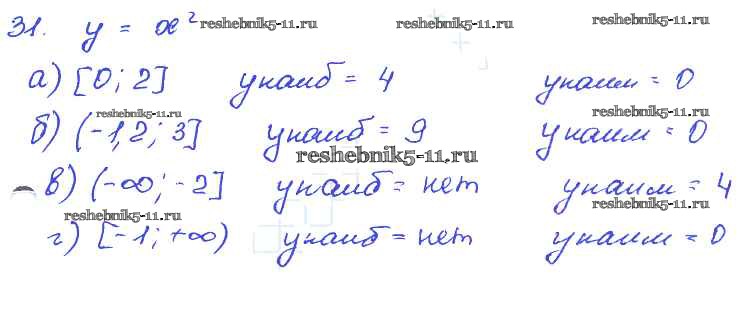 31. y = x² reshebnik5-11.ru reshebnik5-11.ru reshebnik5-11.ru
а) [0; 2] yнаиб = 4 yнаим = 0
reshebnik5-11.ru reshebnik5-11.ru
б) (-1,2; 3] yнаиб = 9 yнаим = 0
reshebnik5-11.ru
в) (-∞; -2] yнаиб = нет yнаим = 4
reshebnik5-11.ru reshebnik5-11.ru
г) [-1; +∞) yнаиб = нет yнаим = 0